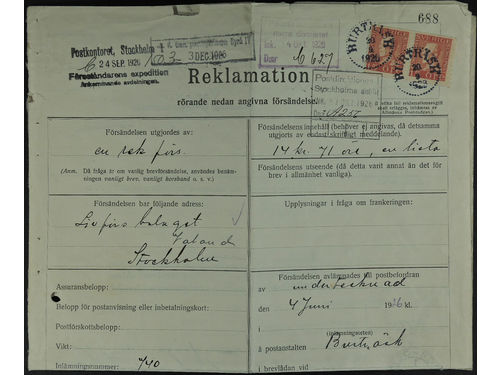 688
Postkontoret, Stockholm
24 SEP. 1926
Föreståndarens expedition
Ankommande avdelningen.
3 DEC. 1926
1926
b 627
BURTRÄSK
20
9
1926
BURTRÄSK
Reklamation
Postdirektionen i
Stockholms distrikt
1926
A257
rörande nedan angivna försändelse.
Försändelsen utgjordes av:
en rek förs.
(Anm. Då fråga är om vanlig brevförsändelse, användes benäm-
ningen vanligt brev, vanligt korsband o. s. v.)
Försändelsens innehåll (behöver ej angivas, då detsamma
utgjorts av endast skriftligt meddelande):
14 kr. 71 öre, en lista
Försändelsens utseende (då detta varit annat än det för
brev i allmänhet vanliga).
Försändelsen bar följande adress:
Livförs bolaget
Valand
Stockholm
Upplysningar i fråga om frankeringen:
Assuransbelopp:
Belopp för postanvisning eller inbetalningskort:
Postförskottsbelopp:
Vikt:
Inlämningsnummer: 740
Försändelsen avlämnades till postbefordran
av undertecknad
den 4 Juni 1926 kl.
(inlämningsorten)
å postanstalten Burträsk
i brevlådan vid